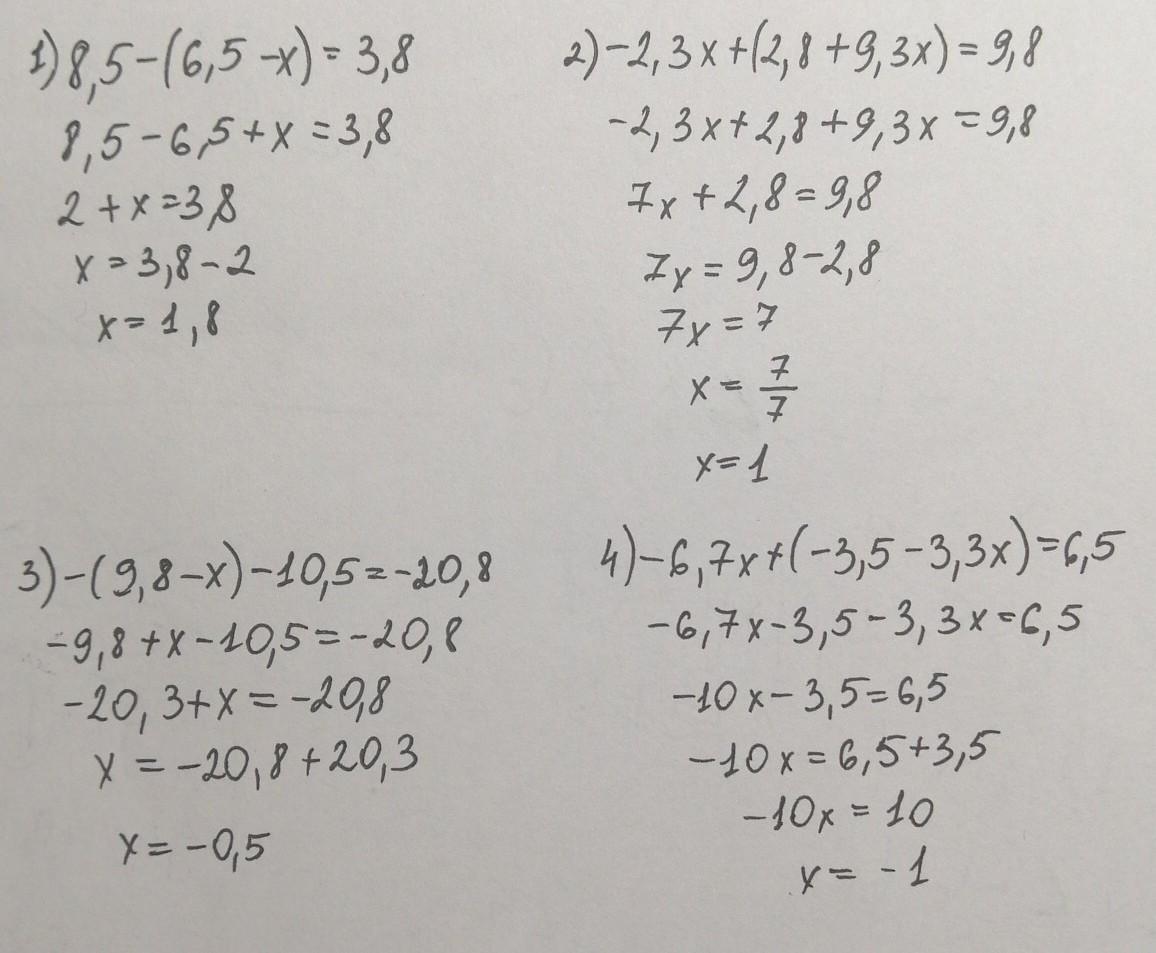 1) 8,5-(6,5-x)=3,8
8,5-6,5+x=3,8
2+x=3,8
x=3,8-2
x=1,8
2) -2,3x+(2,8+9,3x)=9,8
-2,3x+2,8+9,3x=9,8
7x+2,8=9,8
7x=9,8-2,8
7x=7
x=7/7
x=1
3) -(9,8-x)-10,5=-20,8
-9,8+x-10,5=-20,8
-20,3+x=-20,8
x=-20,8+20,3
x=-0,5
4) -6,7x+(-3,5-3,3x)=6,5
-6,7x-3,5-3,3x=6,5
-10x-3,5=6,5
-10x=6,5+3,5
-10x=10
x=-1